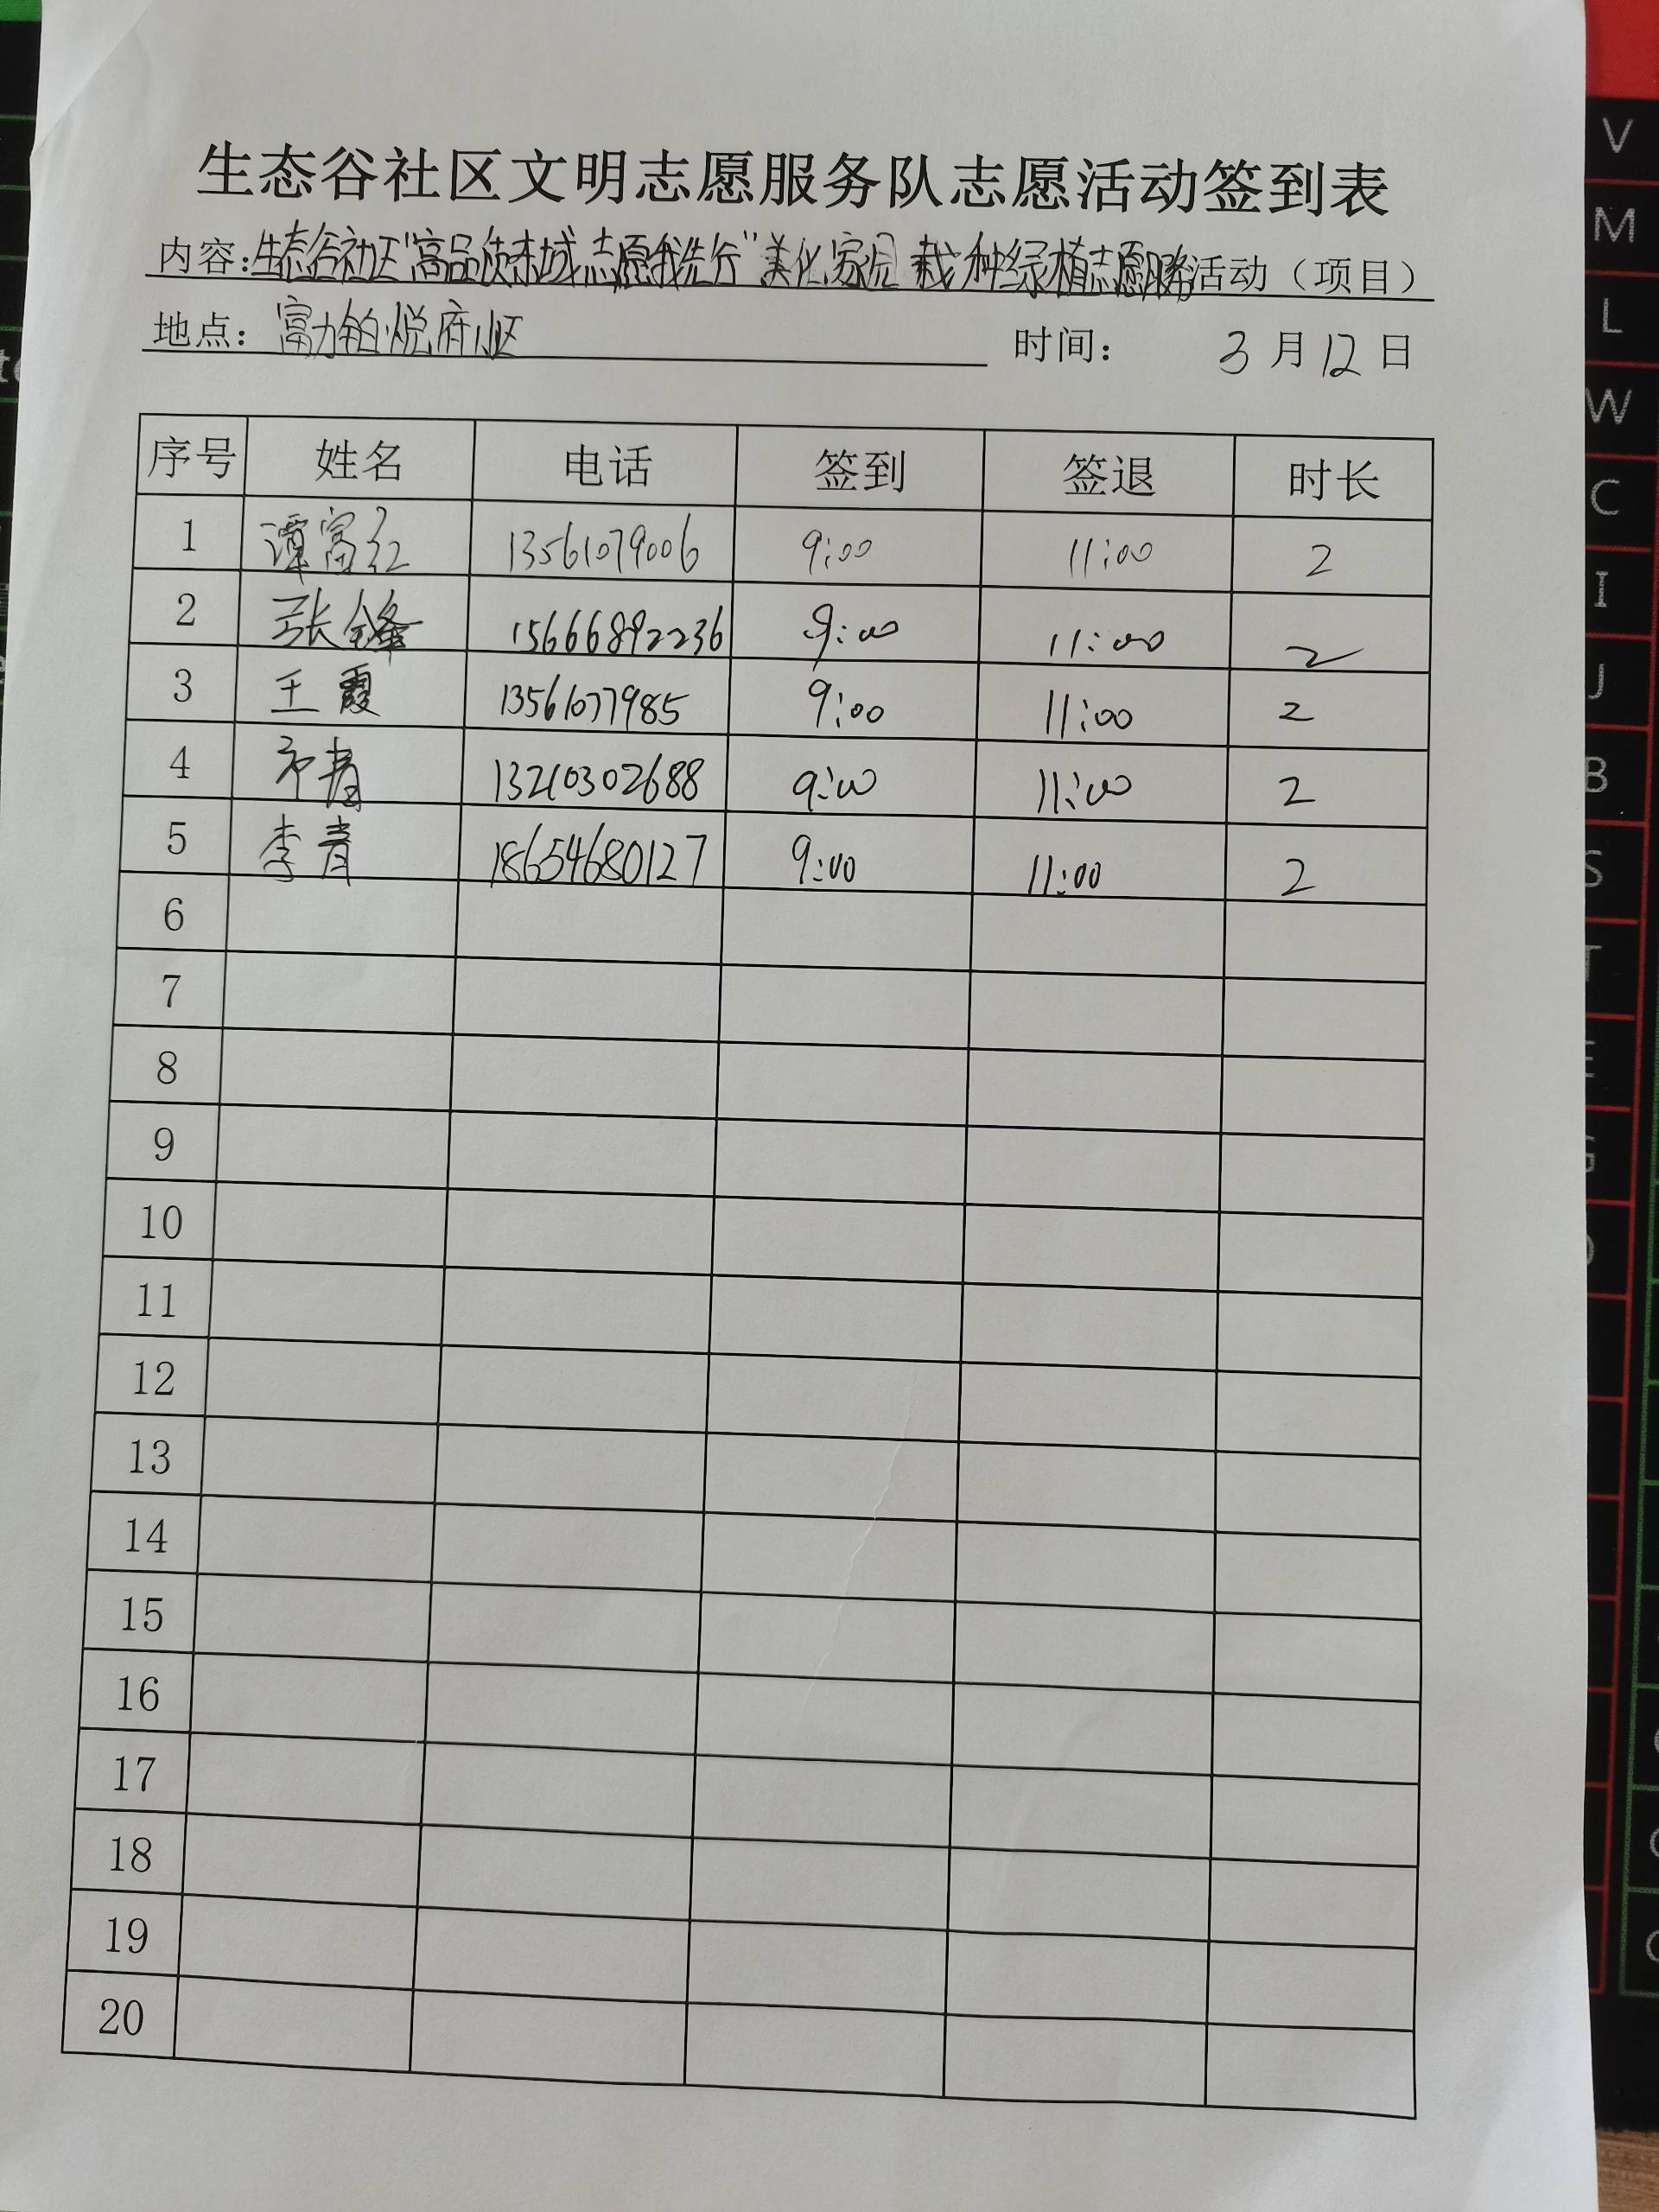 生态谷社区文明志愿服务队志愿活动签到表
内容:生态谷社区"高品质东城 志愿我先行"美化家园 栽种绿植志愿服务活动（项目）
地点：富力铂悦府小区 时间： 3月12日
序号 姓名 电话 签到 签退 时长
1 谭富红 13561079006 9:00 11:00 2
2 张锋 15666892236 9:00 11:00 2
3 王霞 13561077985 9:00 11:00 2
4 13210302688 9:00 11:00 2
5 李青 18654680127 9:00 11:00 2
6
7
8
9
10
11
12
13
14
15
16
17
18
19
20
V
M
L
W
C
I
J
B
S
T
E
G